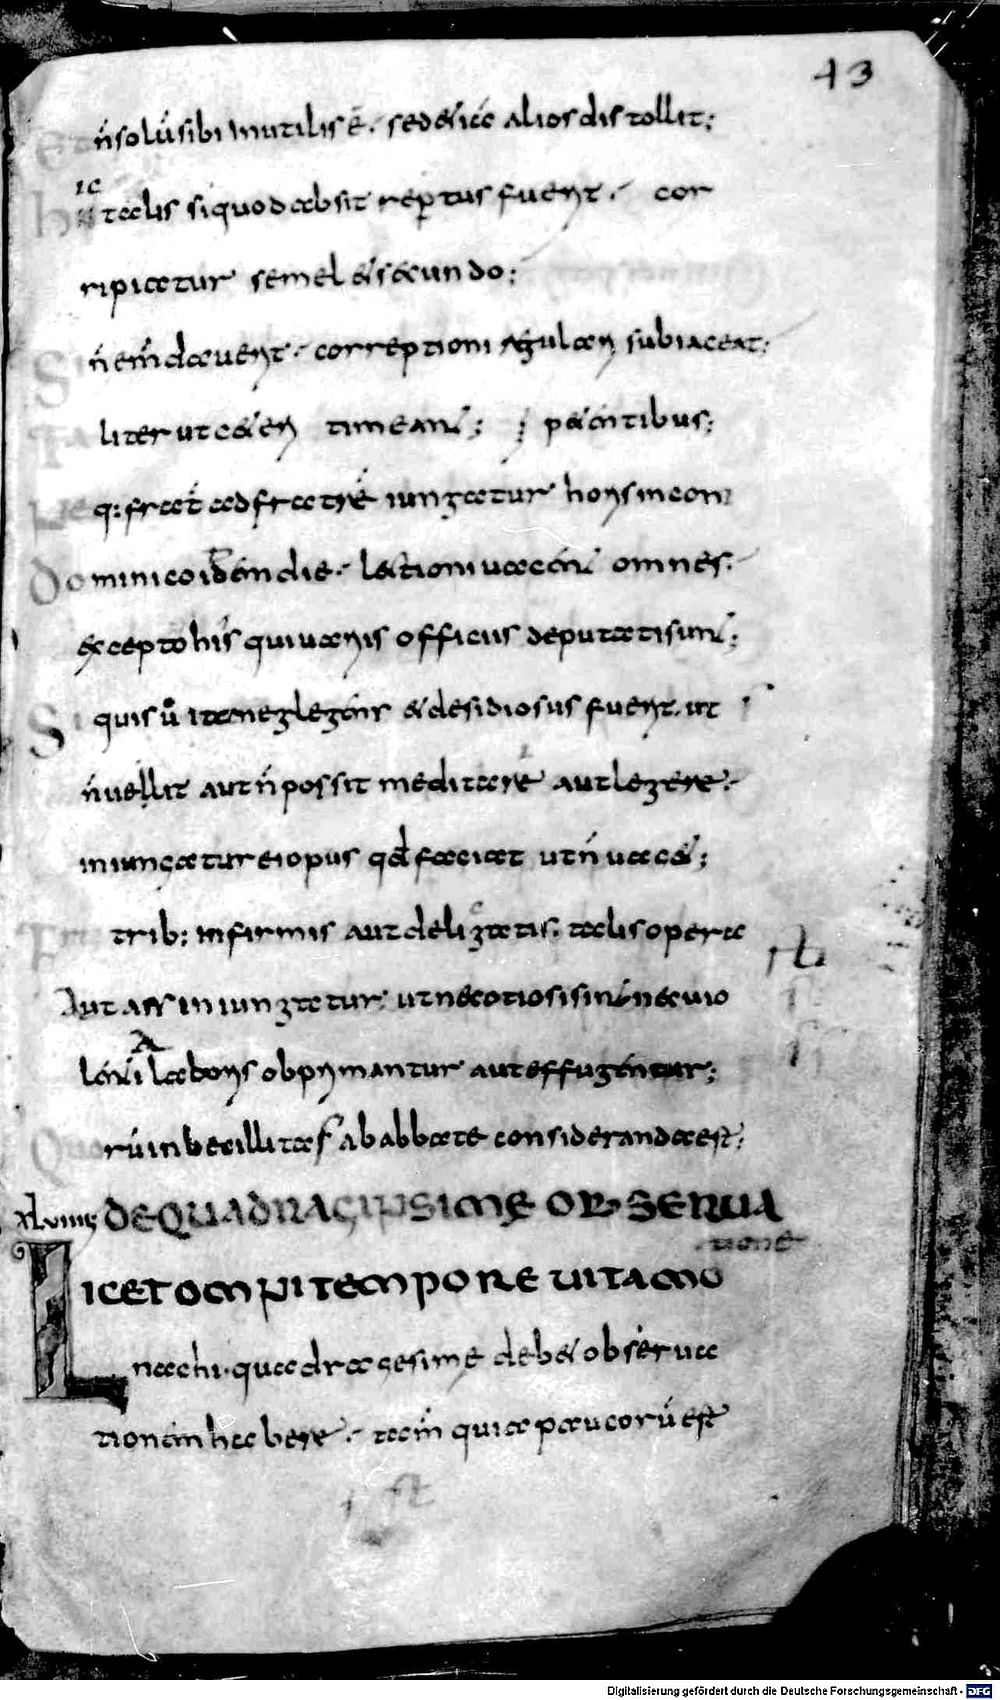 43
Et n̄ solū sibi inutilis ē. sed etiā alios distollit;
hic talis si quod absit reptus fuerit. cor
ripiatur semel et secundo;
Si n̄ emendaverit. correptioni regulari subiaceat;
Ta liter ut ceteri timeant; petentibus;
Neq; frat̄ ad fratrē iungatur horis incon
Dominico id̄ die. lectioni vacent omnes.
excepto his qui variis officiis deputati sunt;
Si quis ū ita neglegens et desidiosus fuerit. ut
n̄ vellit aut n̄ possit meditare aut legere.
iniungatur ei opus qd̄ faciat ut n̄ vacet;
Fra trib; infirmis aut deligatis. talis opera
Aut ars iniungatur. ut nec otiosi sint nec vio
lentia laboris obprimantur aut effugentur;
Quo rū inbecillitas ab abbate consideranda est;
xlviiii DE QUADRAGINSIME OBSERVA
tione
LICET OMNI TEMPORE VITA MO
nachi. quadragesime debet observa
tionem habere. tam̄ quia paucorū est
Digitalisierung gefördert durch die Deutsche Forschungsgemeinschaft - DFG